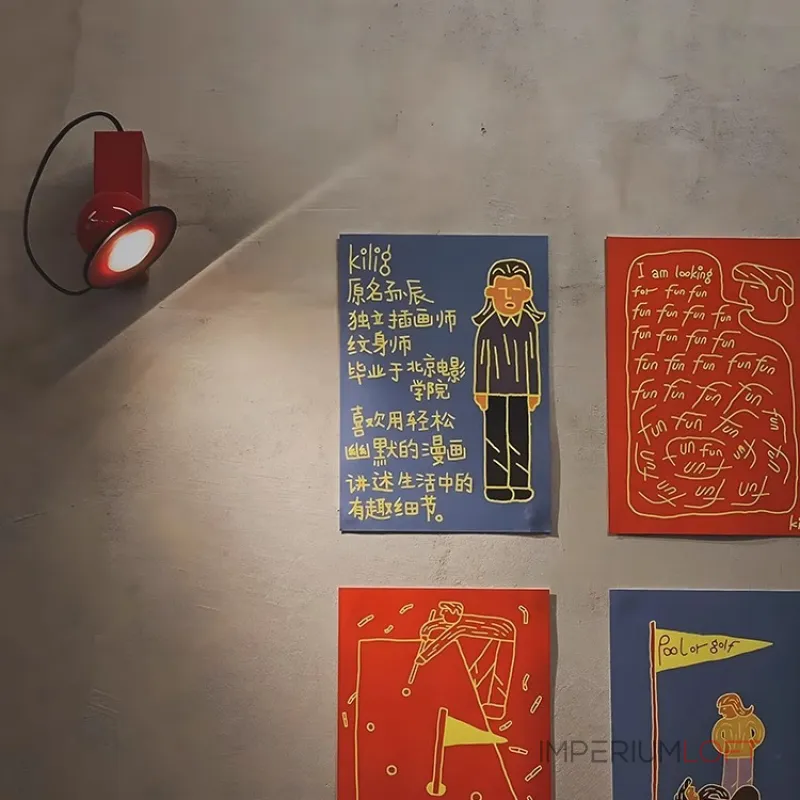 kilig
原名孙辰
独立插画师
纹身师
毕业于北京电影
学院
喜欢用轻松
幽默的漫画
讲述生活中的
有趣细节。
I am looking
for fun fun
fun fun fun fun
fun fun fun fun
fun fun fun fun fun
fun fun fun fun
fun fun fun fun
fun fun
fun
fun fun fun
Pool or golf
IMPERIUMLOFT